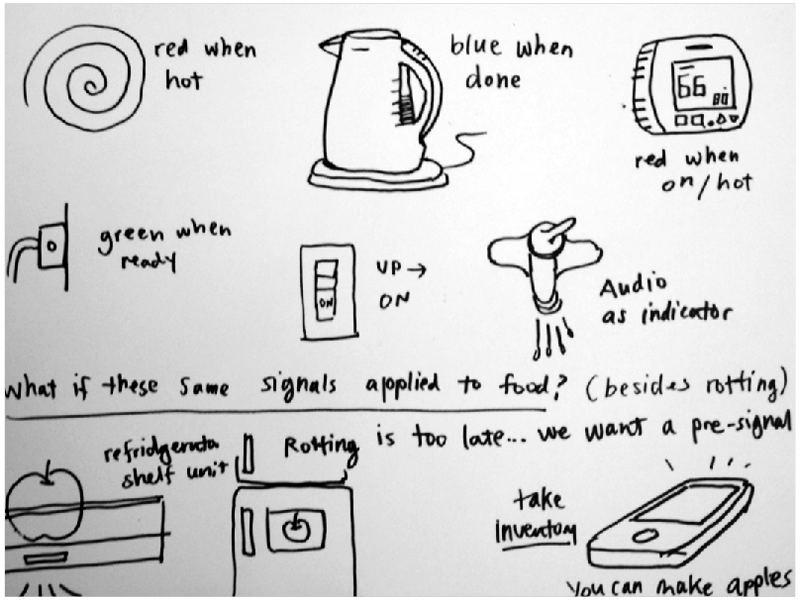 red when
hot
blue when
done
66
red when
on/hot
green when
ready
UP →
ON
ON
Audio
as indicator
What if these same signals applied to food? (besides rotting)
Rotting is too late... we want a pre-signal
shelf unit
take
inventory
You can make apples